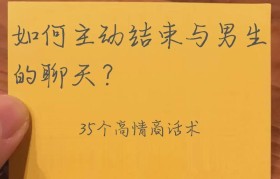 如何主动结束与男生
的聊天？
35个高情商话术